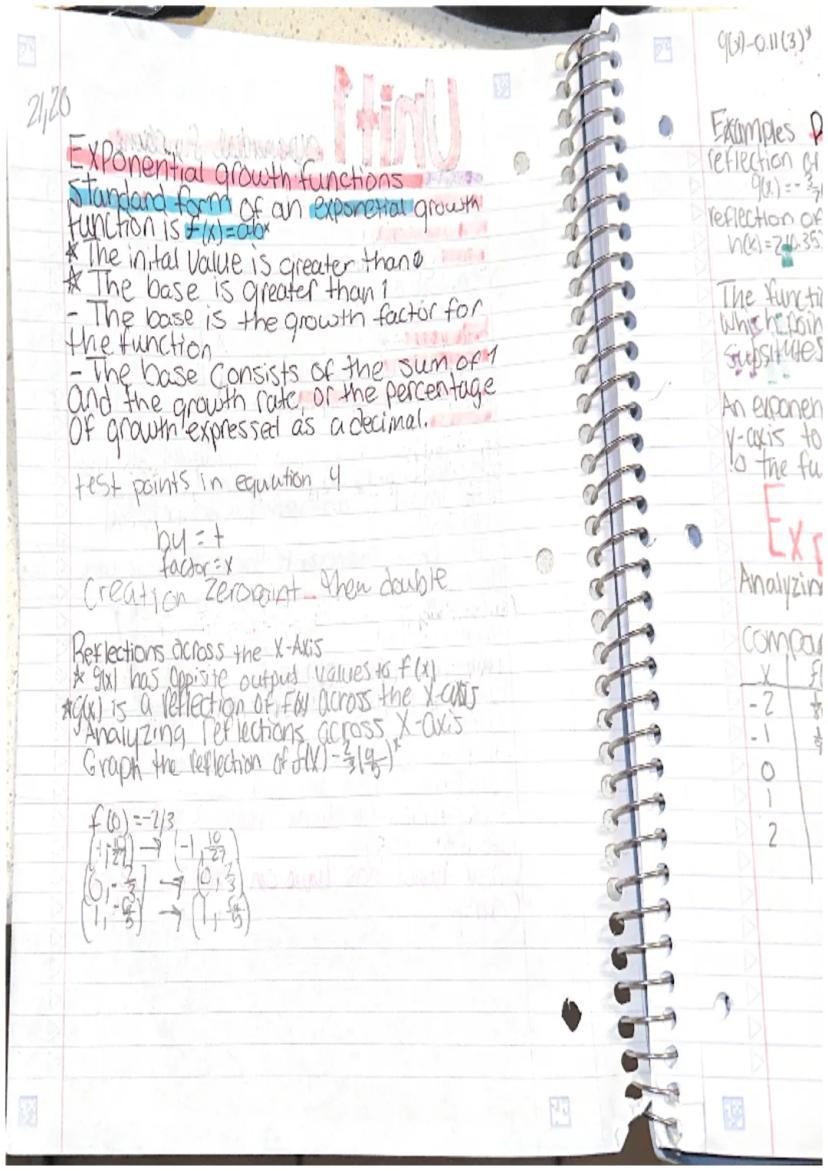 21,20
Unit 1
Exponential growth functions
Standard form of an exponetial growth
function is f(x)=abˣ
* The inital value is greater than 0
* The base is greater than 1
- The base is the growth factor for
the function
- The base consists of the sum of 1
and the growth rate, or the percentage
of growth expressed as a decimal.
test points in equation
by = +
factor = x
Creation zero point then double
Reflections across the X-Axis
* g(x) has oppisite output values to f(x)
* g(x) is a reflection of f(x) across the x-axis
Analyzing reflections across X-axis
Graph the reflection of f(x) -2/3(9/5)ˣ
f(0) = -2/3
(-1,-10/27) → (-1, 10/27)
(0,-2/3) → (0, 2/3)
(1,-6/5) → (1, 6/5)
g(x)-0.11(3)ˣ
Examples
reflection of
g(x) = -
reflection of
h(x)=2(0.35)
The functi
Which poin
Supstitutes
An exponen
y-axis to
the fu
Exp
Analyzin
compar
x f(
-2
-1
0
1
2